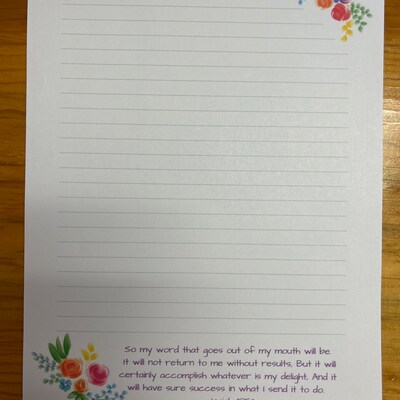 So my word that goes out of my mouth will be.
it will not return to me without results, But it will
certainly accomplish whatever is my delight, And it
will have sure success in what I send it to do.